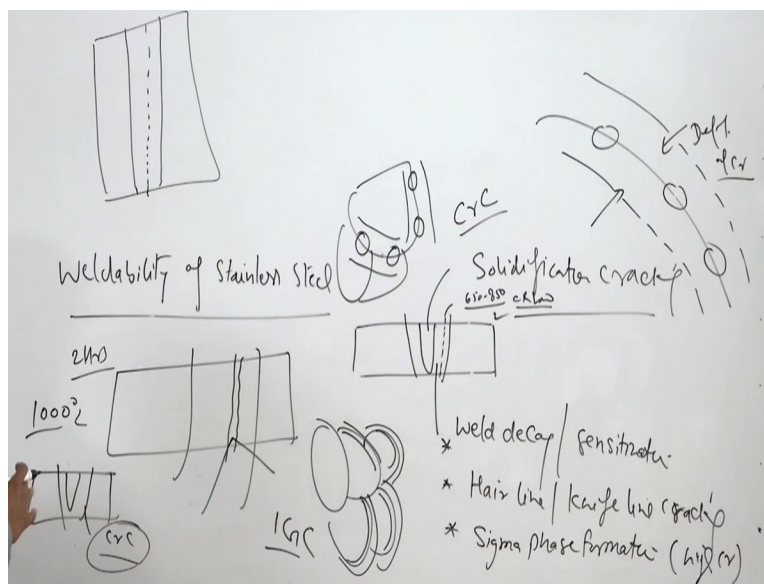 Deft.
of Cr
CrC
Weldability of Stainless Steel
Solidification cracks
650-850
2HrD
1000°C
* Weld decay / sensitization
* Hair line / Knife line cracks
IGC
* Sigma phase formation (high cr)
CrC